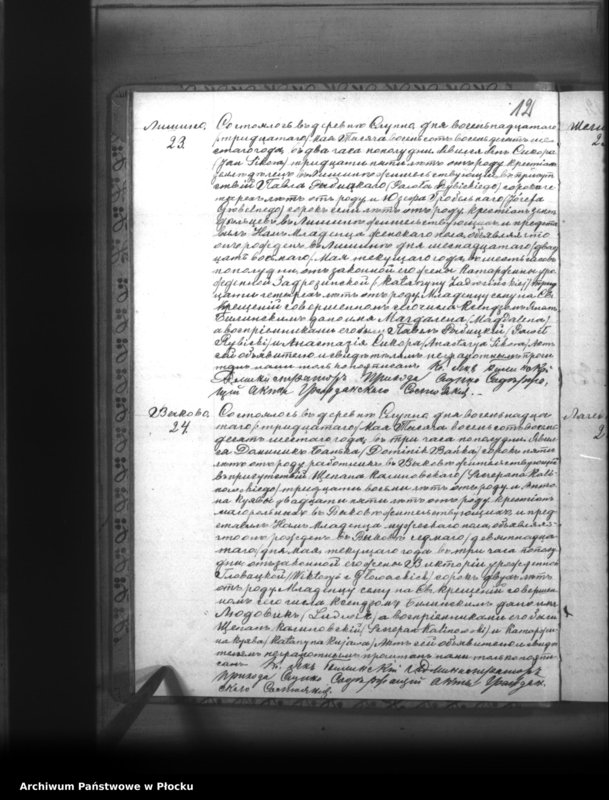 12
Лишино
23.
Состоялось въ деревнѣ Слупно, дня восемьнадцатаго
/тридцатаго/ мая тысяча восемьсотъ восемьдесятъ ше-
стаго года, въ два часа пополудни. Явился Янъ Сикора
/Jan Sikora/, тридцати пяти лѣтъ отъ роду, крестьян
земледѣлецъ въ Лишинѣ жительствующій, въ присут-
ствіи Павла Рыбицкаго /Pawła Rybickiego/ сорока че-
тырехъ лѣтъ отъ роду и Юзефа /Józefa
сорока семи лѣтъ отъ роду, крестьянъ земле-
дѣльцевъ въ Лишинѣ жительствующихъ и предста-
вилъ Намъ младенца женскаго пола, объявляя что
оно рождено въ Лишинѣ дня шестнадцатаго /двад-
цать восьмаго/ мая текущаго года, въ шесть часовъ
пополудни, отъ законной его жены Катаржины уро-
жденной Задрозинской /Katarzyny Zadrozińskiej/ трид-
цати четырехъ лѣтъ отъ роду. Младенцу сему на Св.
крещеніи совершенномъ сего числа Ксендзомъ
Билинскимъ дано имя Магдалена, /Magdalena/
а воспріемниками его были Павелъ Рыбицкій /Paweł
Rybicki/ и Анастазія Сикора /Anastazya Sikora/. Актъ
сей объявителю и свидѣтелямъ неграмотнымъ прочи-
танъ нами только подписанъ. Кс.
Администраторъ Прихода Слупно Содержа-
щій Акты Гражданскаго Состоянія.
Быково
24.
Состоялось въ деревнѣ Слупно, дня восемьнадца-
таго /тридцатаго/ мая тысяча восемьсотъ восемь-
десятъ шестаго года, въ три часа пополудни. Явил-
ся Доминикъ Банька /Dominik Bańka/ сорока пяти
лѣтъ отъ роду, работникъ въ Быковѣ жительствующій
въ присутствіи Щепана Калиновскаго /Szczepana Kali-
nowskiego/ тридцати восьми лѣтъ отъ роду, и
двадцати пяти лѣтъ отъ роду, крестьянъ
малорольныхъ въ Быковѣ жительствующихъ и пред-
ставилъ Намъ младенца мужескаго пола, объявляя
что оно рождено въ Быковѣ седмаго /девятнадца-
таго/ дня мая текущаго года въ три часа пополу-
дни отъ законной его жены Викторіи урожденной
Гловацкой /Wiktoryi z Głowackich/ сорокъ двухъ лѣтъ
отъ роду. Младенцу сему на Св. крещеніи совершен-
номъ сего числа Ксендзомъ Билинскимъ дано имя
Людовикъ /Ludwik/, а воспріемниками его были
Щепанъ Калиновскій /Szczepan Kalinowski/ и Катаржи-
на Куява /Katarzyna Kujawa/. Актъ сей объявителю и свидѣ-
телямъ неграмотнымъ прочитанъ нами только подпи-
санъ. Кс. Билинскій Администраторъ
Прихода Слупно Содержащій Акты Граждан-
скаго Состоянія.
Archiwum Państwowe w Płocku